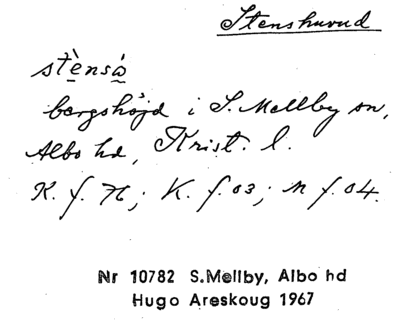 Stenshuvud
stènsò
bærgshöjd i S. Mellby sn,
Albo hd, Krist. l.
K. f. 76; K. f. 03; M f. 04.
Nr 10782 S.Mellby, Albo hd
Hugo Areskoug 1967